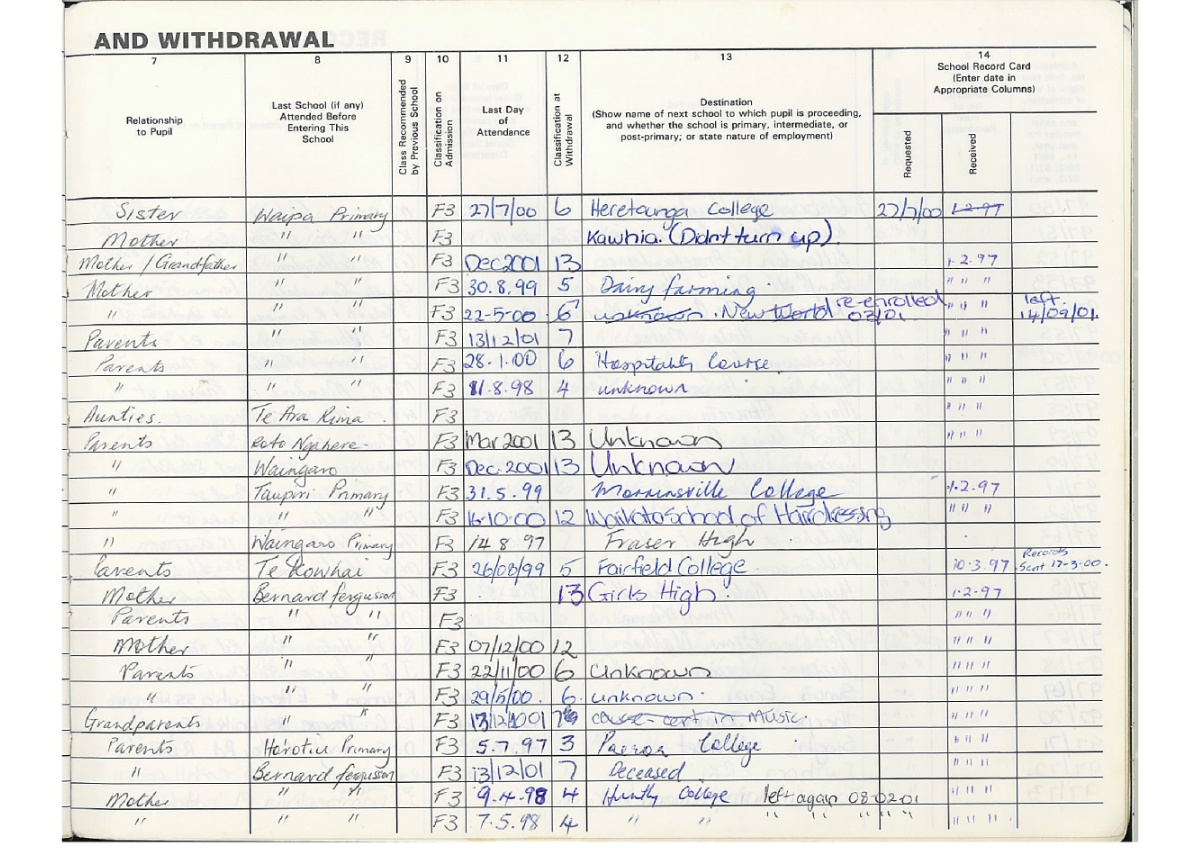 AND WITHDRAWAL
7 8 9 10 11 12 13 14
Relationship to Pupil
Last School (if any) Attended Before Entering This School
Class Recommended by Previous School
Classification on Admission
Last Day of Attendance
Classification at Withdrawal
Destination
(Show name of next school to which pupil is proceeding, and whether the school is primary, intermediate, or post-primary; or state nature of employment)
School Record Card
(Enter date in Appropriate Columns)
Requested
Received
Sister Waipa Primary F3 27/7/00 6 Heretaunga College 27/7/00 1-2-97
Mother " " F3 Kawhia. (Didnt turn up).
Mother / Grandfather " " F3 Dec 2001 13 1-2-97
Mother " " F3 30.8.99 5 Dairy farming. " " "
" " " F3 22-5-00 6 unknown. New World re-enrolled 02/01. " " " left 14/09/01.
Parents " " F3 13/12/01 7 " " "
Parents " " F3 28-1-00 6 Hospitality Course. " " "
" " " F3 11.8.98 4 unknown " " "
Aunties. Te Ara Rima. F3 " " "
Parents Roto Ngahere F3 Mar 2001 13 Unknown " " "
" Waingaro F3 Dec 2001 13 Unknown
" Taupiri Primary F3 31.5.99 Morrinsville College 1-2-97
" " " F3 16-10-00 12 Waikato School of Hairdressing " " "
" Waingaro Primary F3 14 8 97 Fraser High
Parents Te Kowhai F3 26/08/99 5 Fairfield College 10-3-97 Records Sent 17-3-00.
Mother Bernard fergusson F3 13 Girls High. 1-2-97
Parents " " F3 " " "
Mother " " F3 07/12/00 12 " " "
Parents " " F3 22/11/00 6 Unknown " " "
" " " F3 29/5/00. 6. unknown. " " "
Grandparents " " F3 13/12/2001 7 course-cert in Music. " " "
Parents Horotiu Primary F3 5.7.97 3 Paeroa College " " "
" Bernard fergusson F3 13/12/01 7 Deceased " " "
Mother " " F3 9.4.98 4 Huntly College left again 08-02-01 " " "
" " " F3 7.5.98 4 " " " " " " " " " "